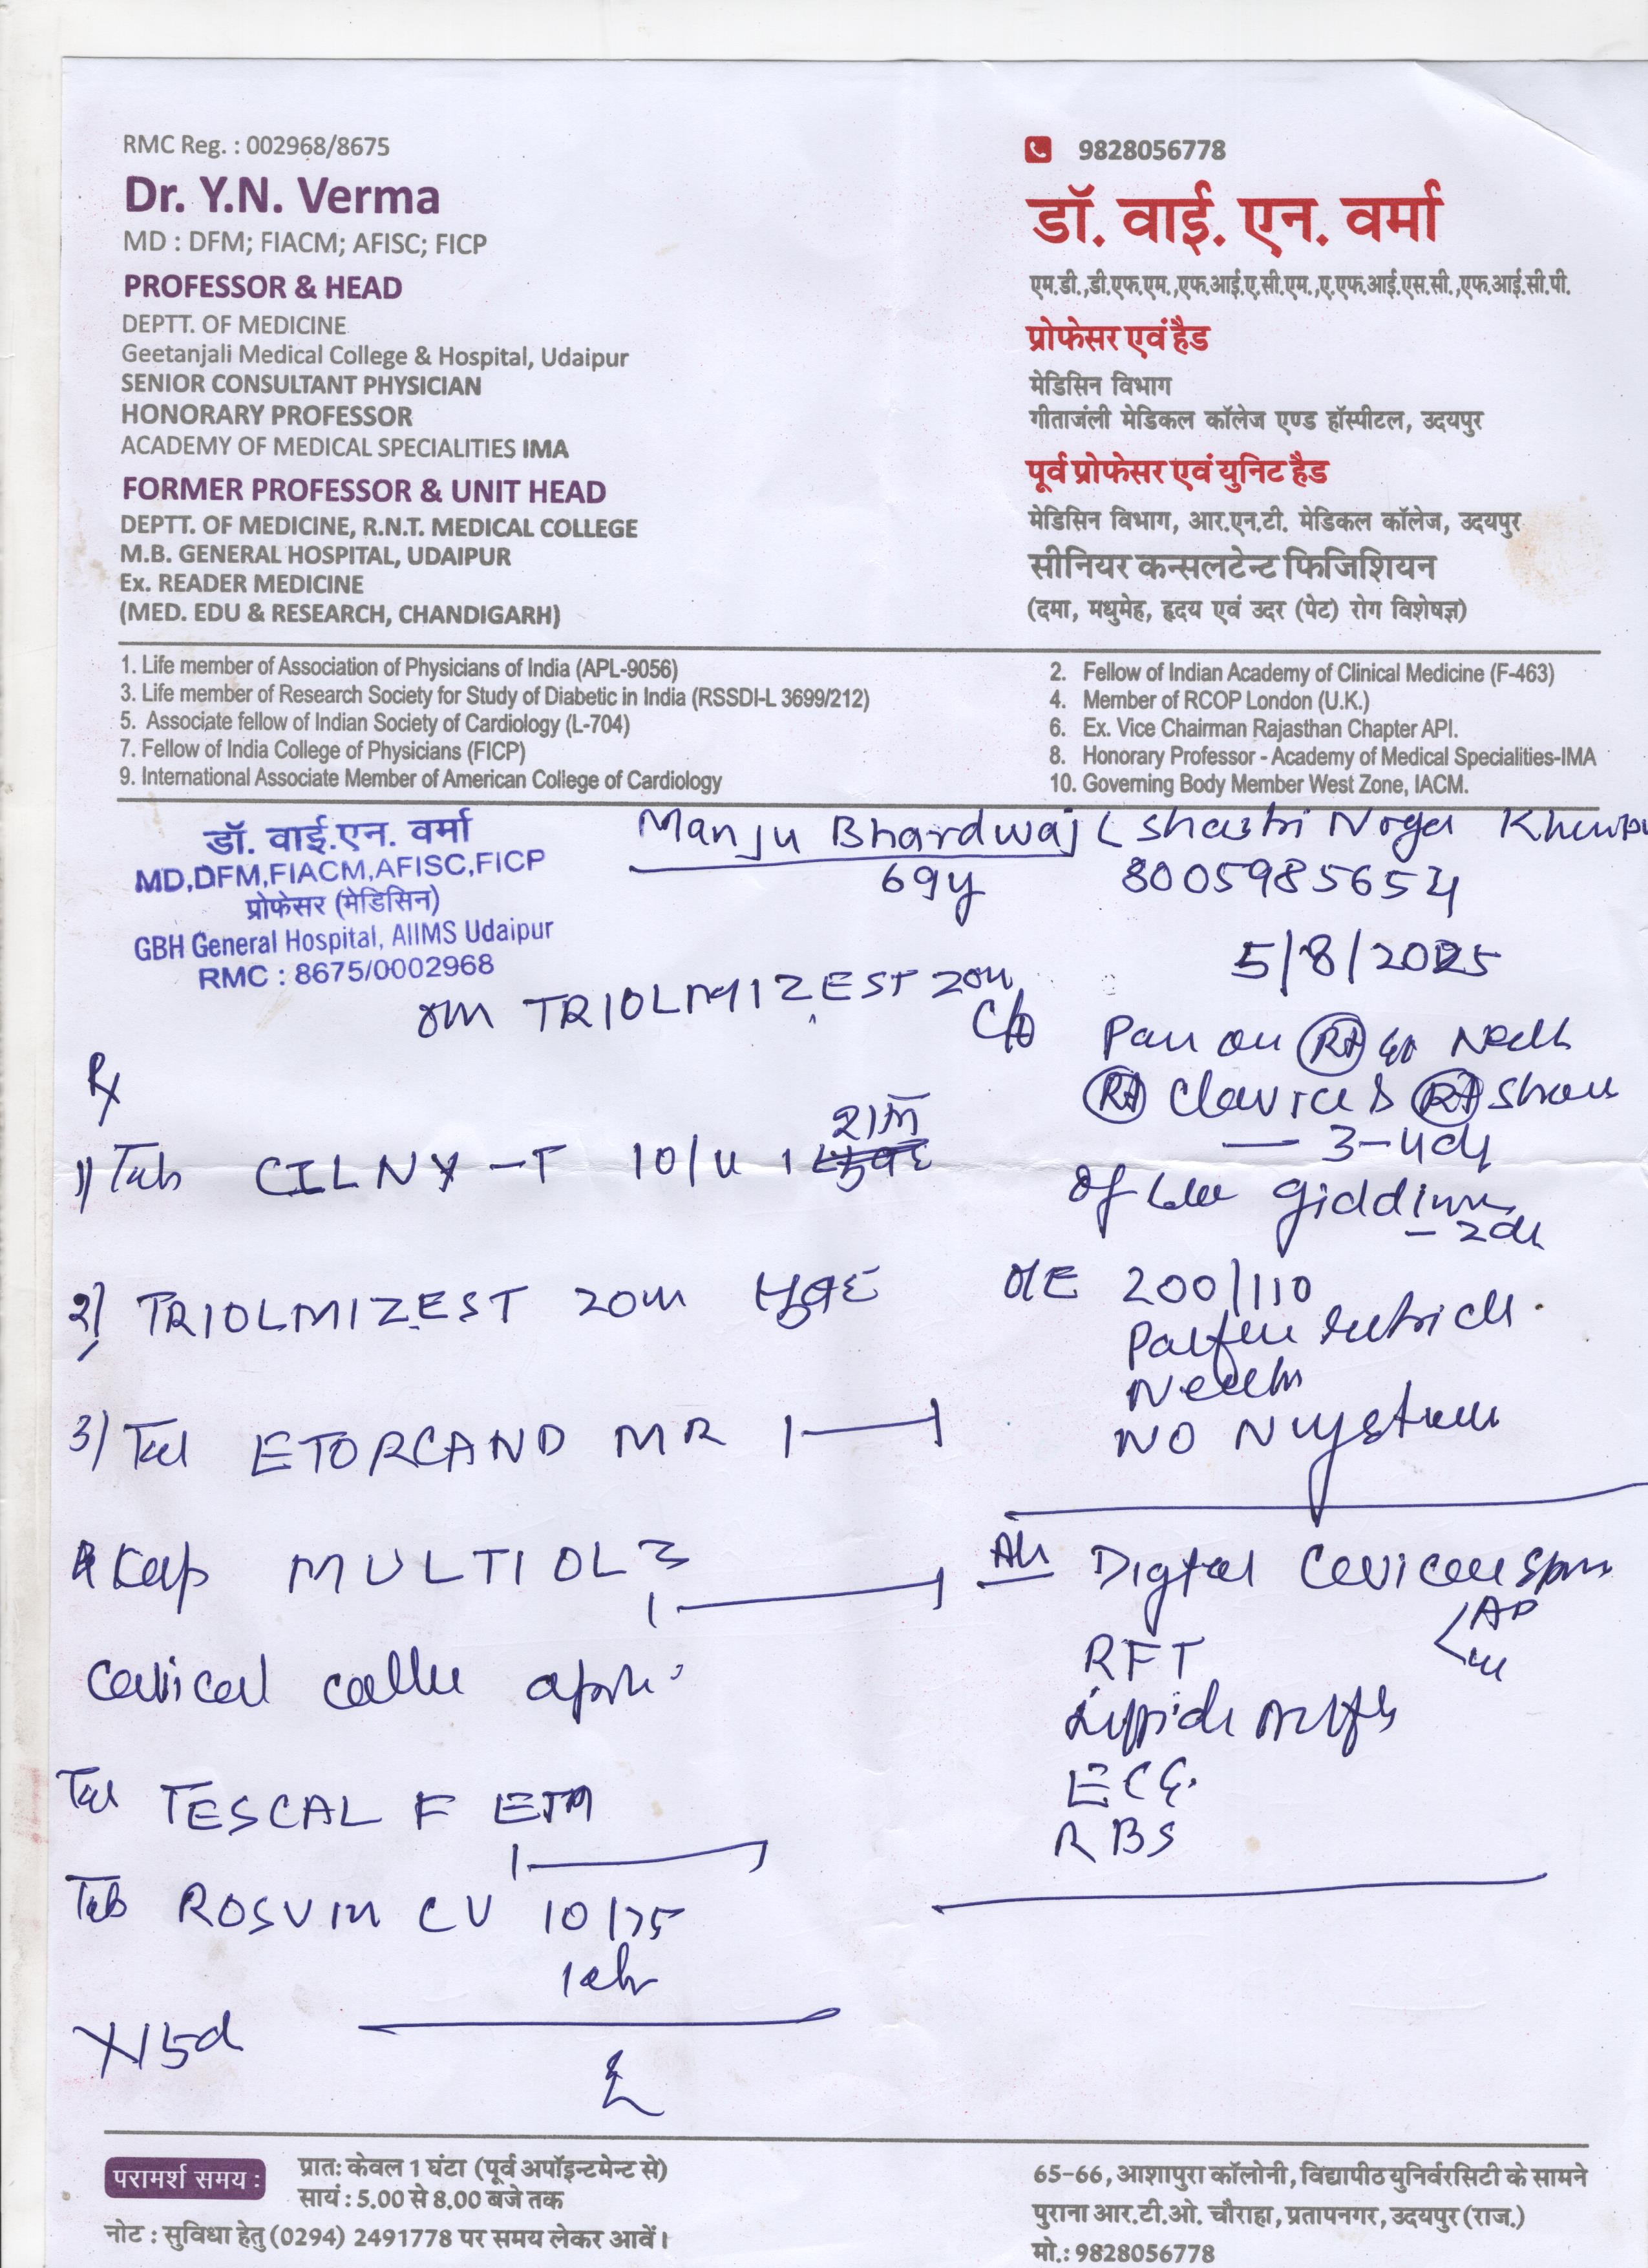 RMC Reg. : 002968/8675
Dr. Y.N. Verma
MD : DFM; FIACM; AFISC; FICP
PROFESSOR & HEAD
DEPTT. OF MEDICINE
Geetanjali Medical College & Hospital, Udaipur
SENIOR CONSULTANT PHYSICIAN
HONORARY PROFESSOR
ACADEMY OF MEDICAL SPECIALITIES IMA
FORMER PROFESSOR & UNIT HEAD
DEPTT. OF MEDICINE, R.N.T. MEDICAL COLLEGE
M.B. GENERAL HOSPITAL, UDAIPUR
Ex. READER MEDICINE
(MED. EDU & RESEARCH, CHANDIGARH)
9828056778
डॉ. वाई. एन. वर्मा
एम.डी.,डी.एफ.एम.,एफ.आई.ए.सी.एम.,ए.एफ.आई.एस.सी.,एफ.आई.सी.पी.
प्रोफेसर एवं हैड
मेडिसिन विभाग
गीताजंली मेडिकल कॉलेज एण्ड हॉस्पीटल, उदयपुर
पूर्व प्रोफेसर एवं युनिट हैड
मेडिसिन विभाग, आर.एन.टी. मेडिकल कॉलेज, उदयपुर
सीनियर कन्सलटेन्ट फिजिशियन
(दमा, मधुमेह, हृदय एवं उदर (पेट) रोग विशेषज्ञ)
1. Life member of Association of Physicians of India (APL-9056)
2. Fellow of Indian Academy of Clinical Medicine (F-463)
3. Life member of Research Society for Study of Diabetic in India (RSSDI-L 3699/212)
4. Member of RCOP London (U.K.)
5. Associate fellow of Indian Society of Cardiology (L-704)
6. Ex. Vice Chairman Rajasthan Chapter API.
7. Fellow of India College of Physicians (FICP)
8. Honorary Professor - Academy of Medical Specialities-IMA
9. International Associate Member of American College of Cardiology
10. Governing Body Member West Zone, IACM.
डॉ. वाई.एन. वर्मा
MD,DFM,FIACM,AFISC,FICP
प्रोफेसर (मेडिसिन)
GBH General Hospital, AIIMS Udaipur
RMC : 8675/0002968
Manju Bhardwaj ( Shastri Nagar
69y 8005985654
5/8/2025
on TRIOLMIZEST 20m
C/O Pain on Rt Neck
Rt Clavicle Rt
— 3-4d
Giddiness
- 2d
O/E 200/110
Neck
NO Nystagmus
Rx
1) Tab CILNY -T 10/4 1 शाम
2) TRIOLMIZEST 20m सुबह
3) Tab ETORCAND MR 1—1
Cap MULTIOL 3
1—1
Cervical collar
Tab TESCAL F
1—1
Tab ROSVIN CV 10/75
X15d
Digital Cervical Spine
AP
RFT
Lipid
ECG.
RBS
परामर्श समय :
प्रातः केवल 1 घंटा (पूर्व अपॉइन्टमेन्ट से)
सायं : 5.00 से 8.00 बजे तक
नोट : सुविधा हेतु (0294) 2491778 पर समय लेकर आवें।
65-66, आशापुरा कॉलोनी, विद्यापीठ युनिर्वरसिटी के सामने
पुराना आर.टी.ओ. चौराहा, प्रतापनगर, उदयपुर (राज.)
मो.: 9828056778